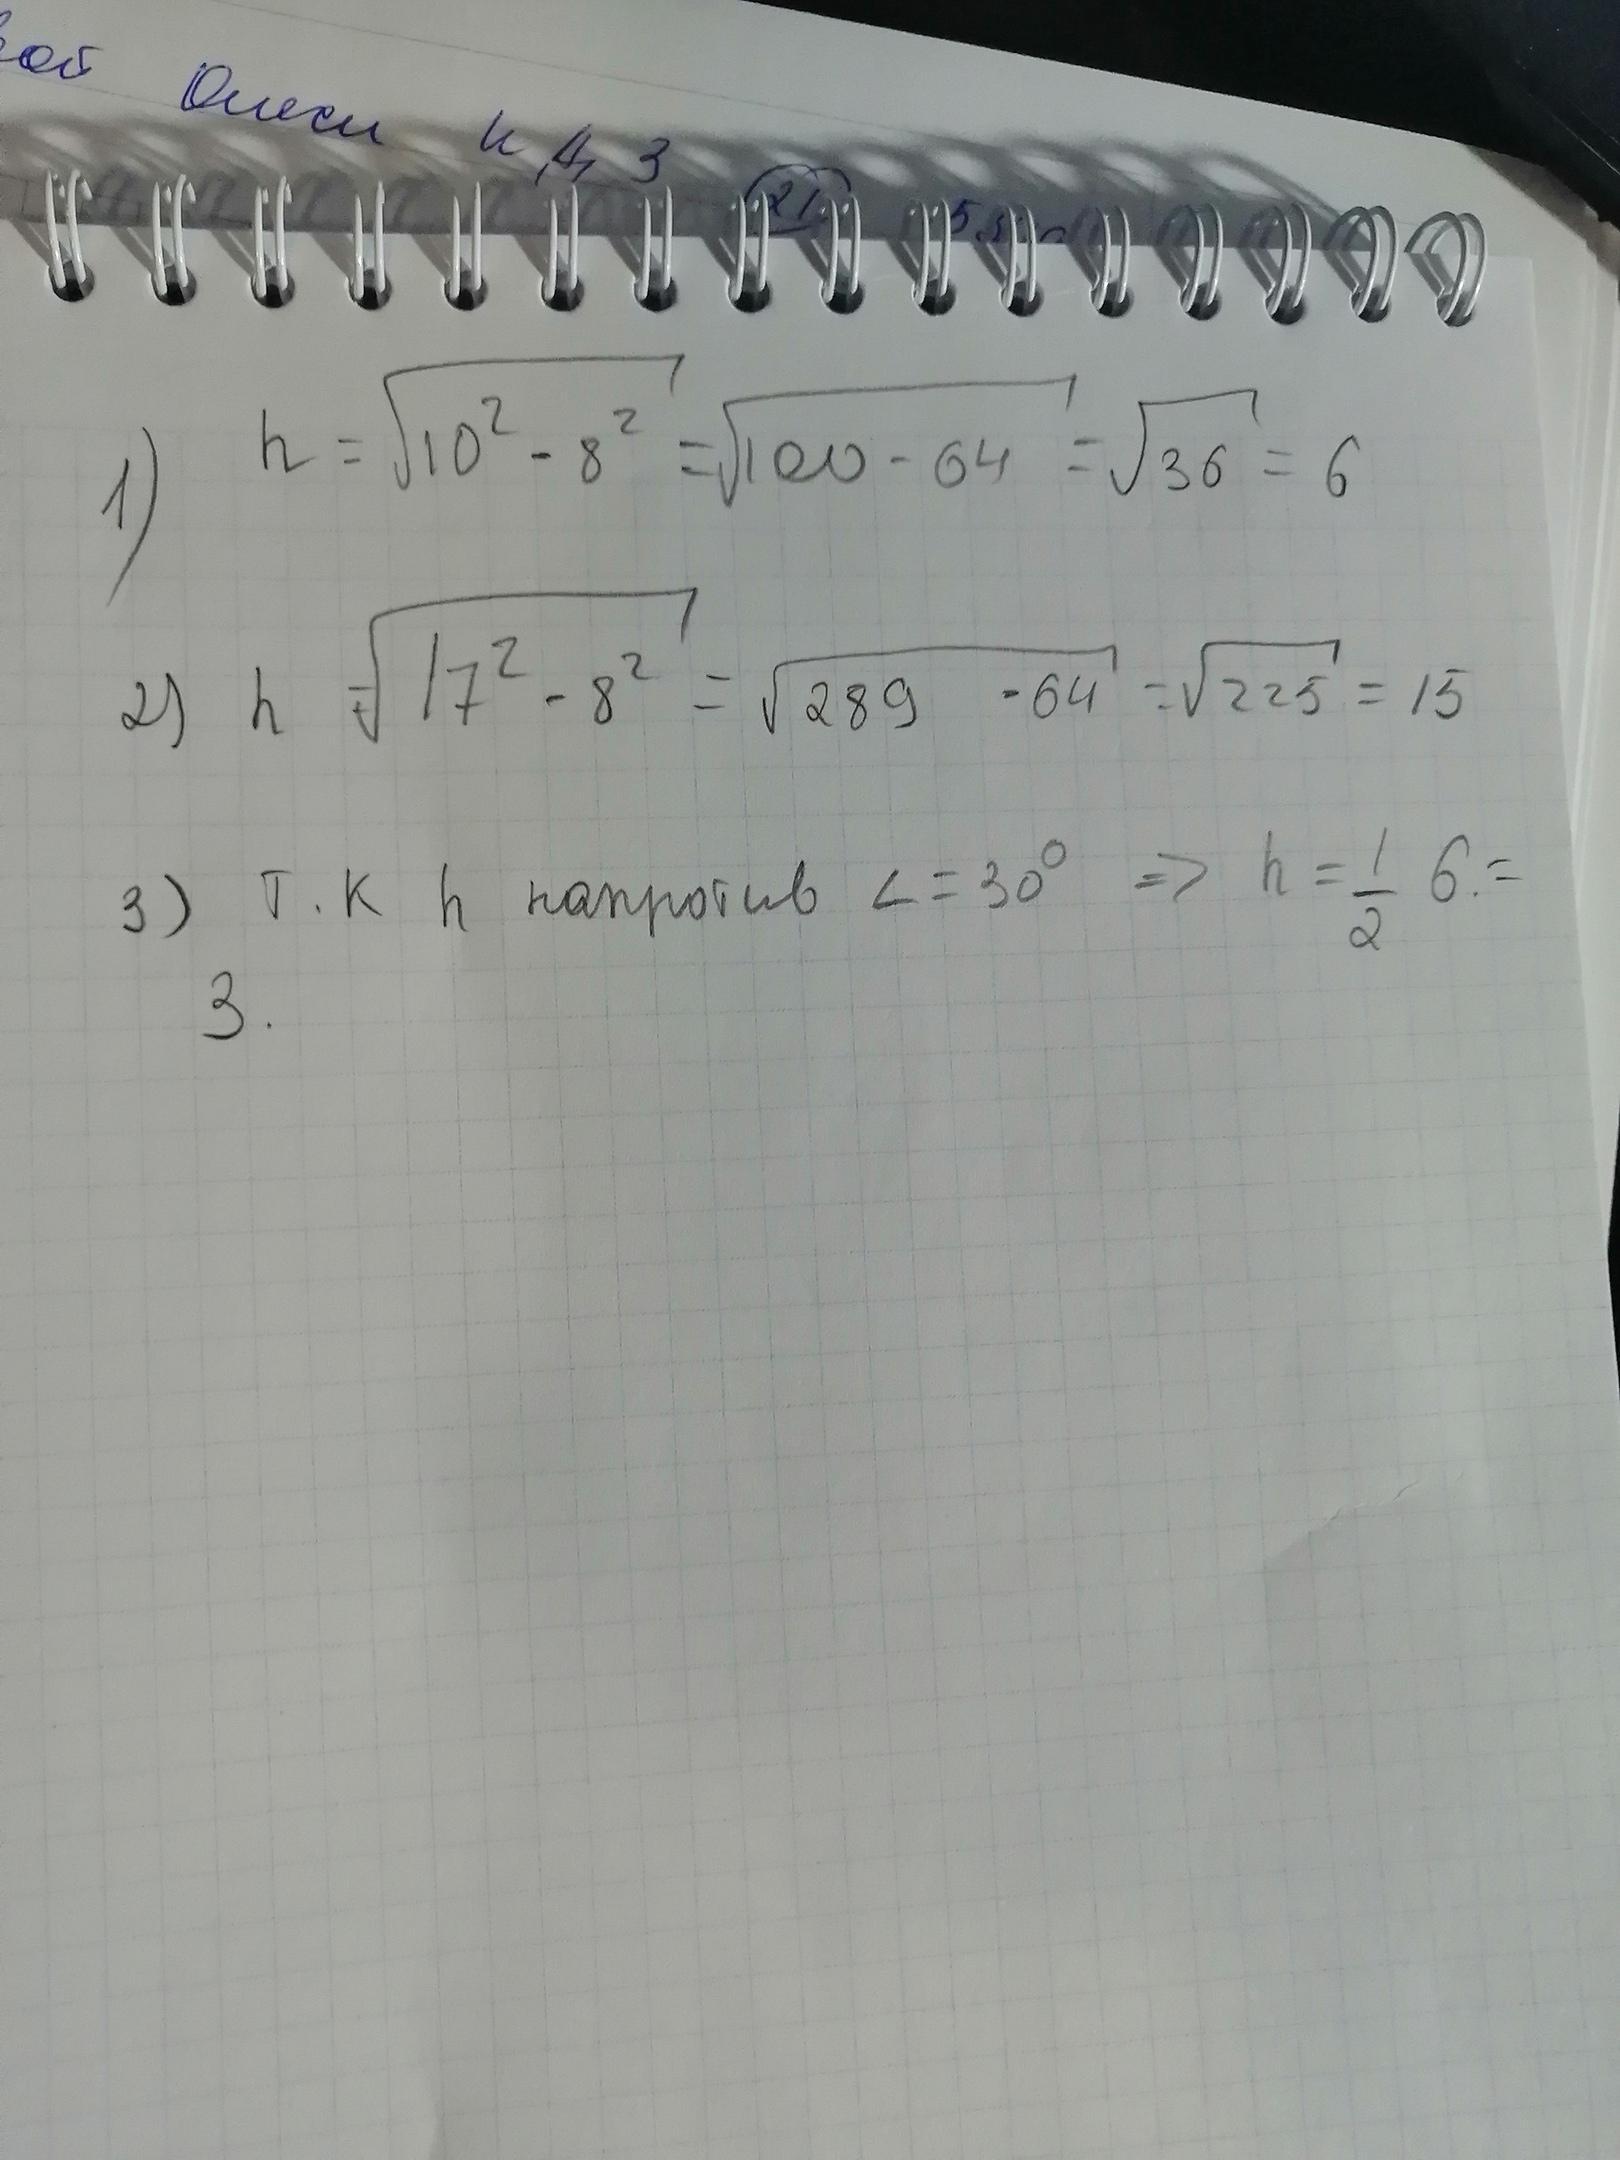 Олеси к, д, 3
21
1) h = √10² - 8² = √100 - 64 = √36 = 6
2) h = √17² - 8² = √289 - 64 = √225 = 15
3) Т. к h напротив ∠ = 30° => h = 1/2 6. =
3.